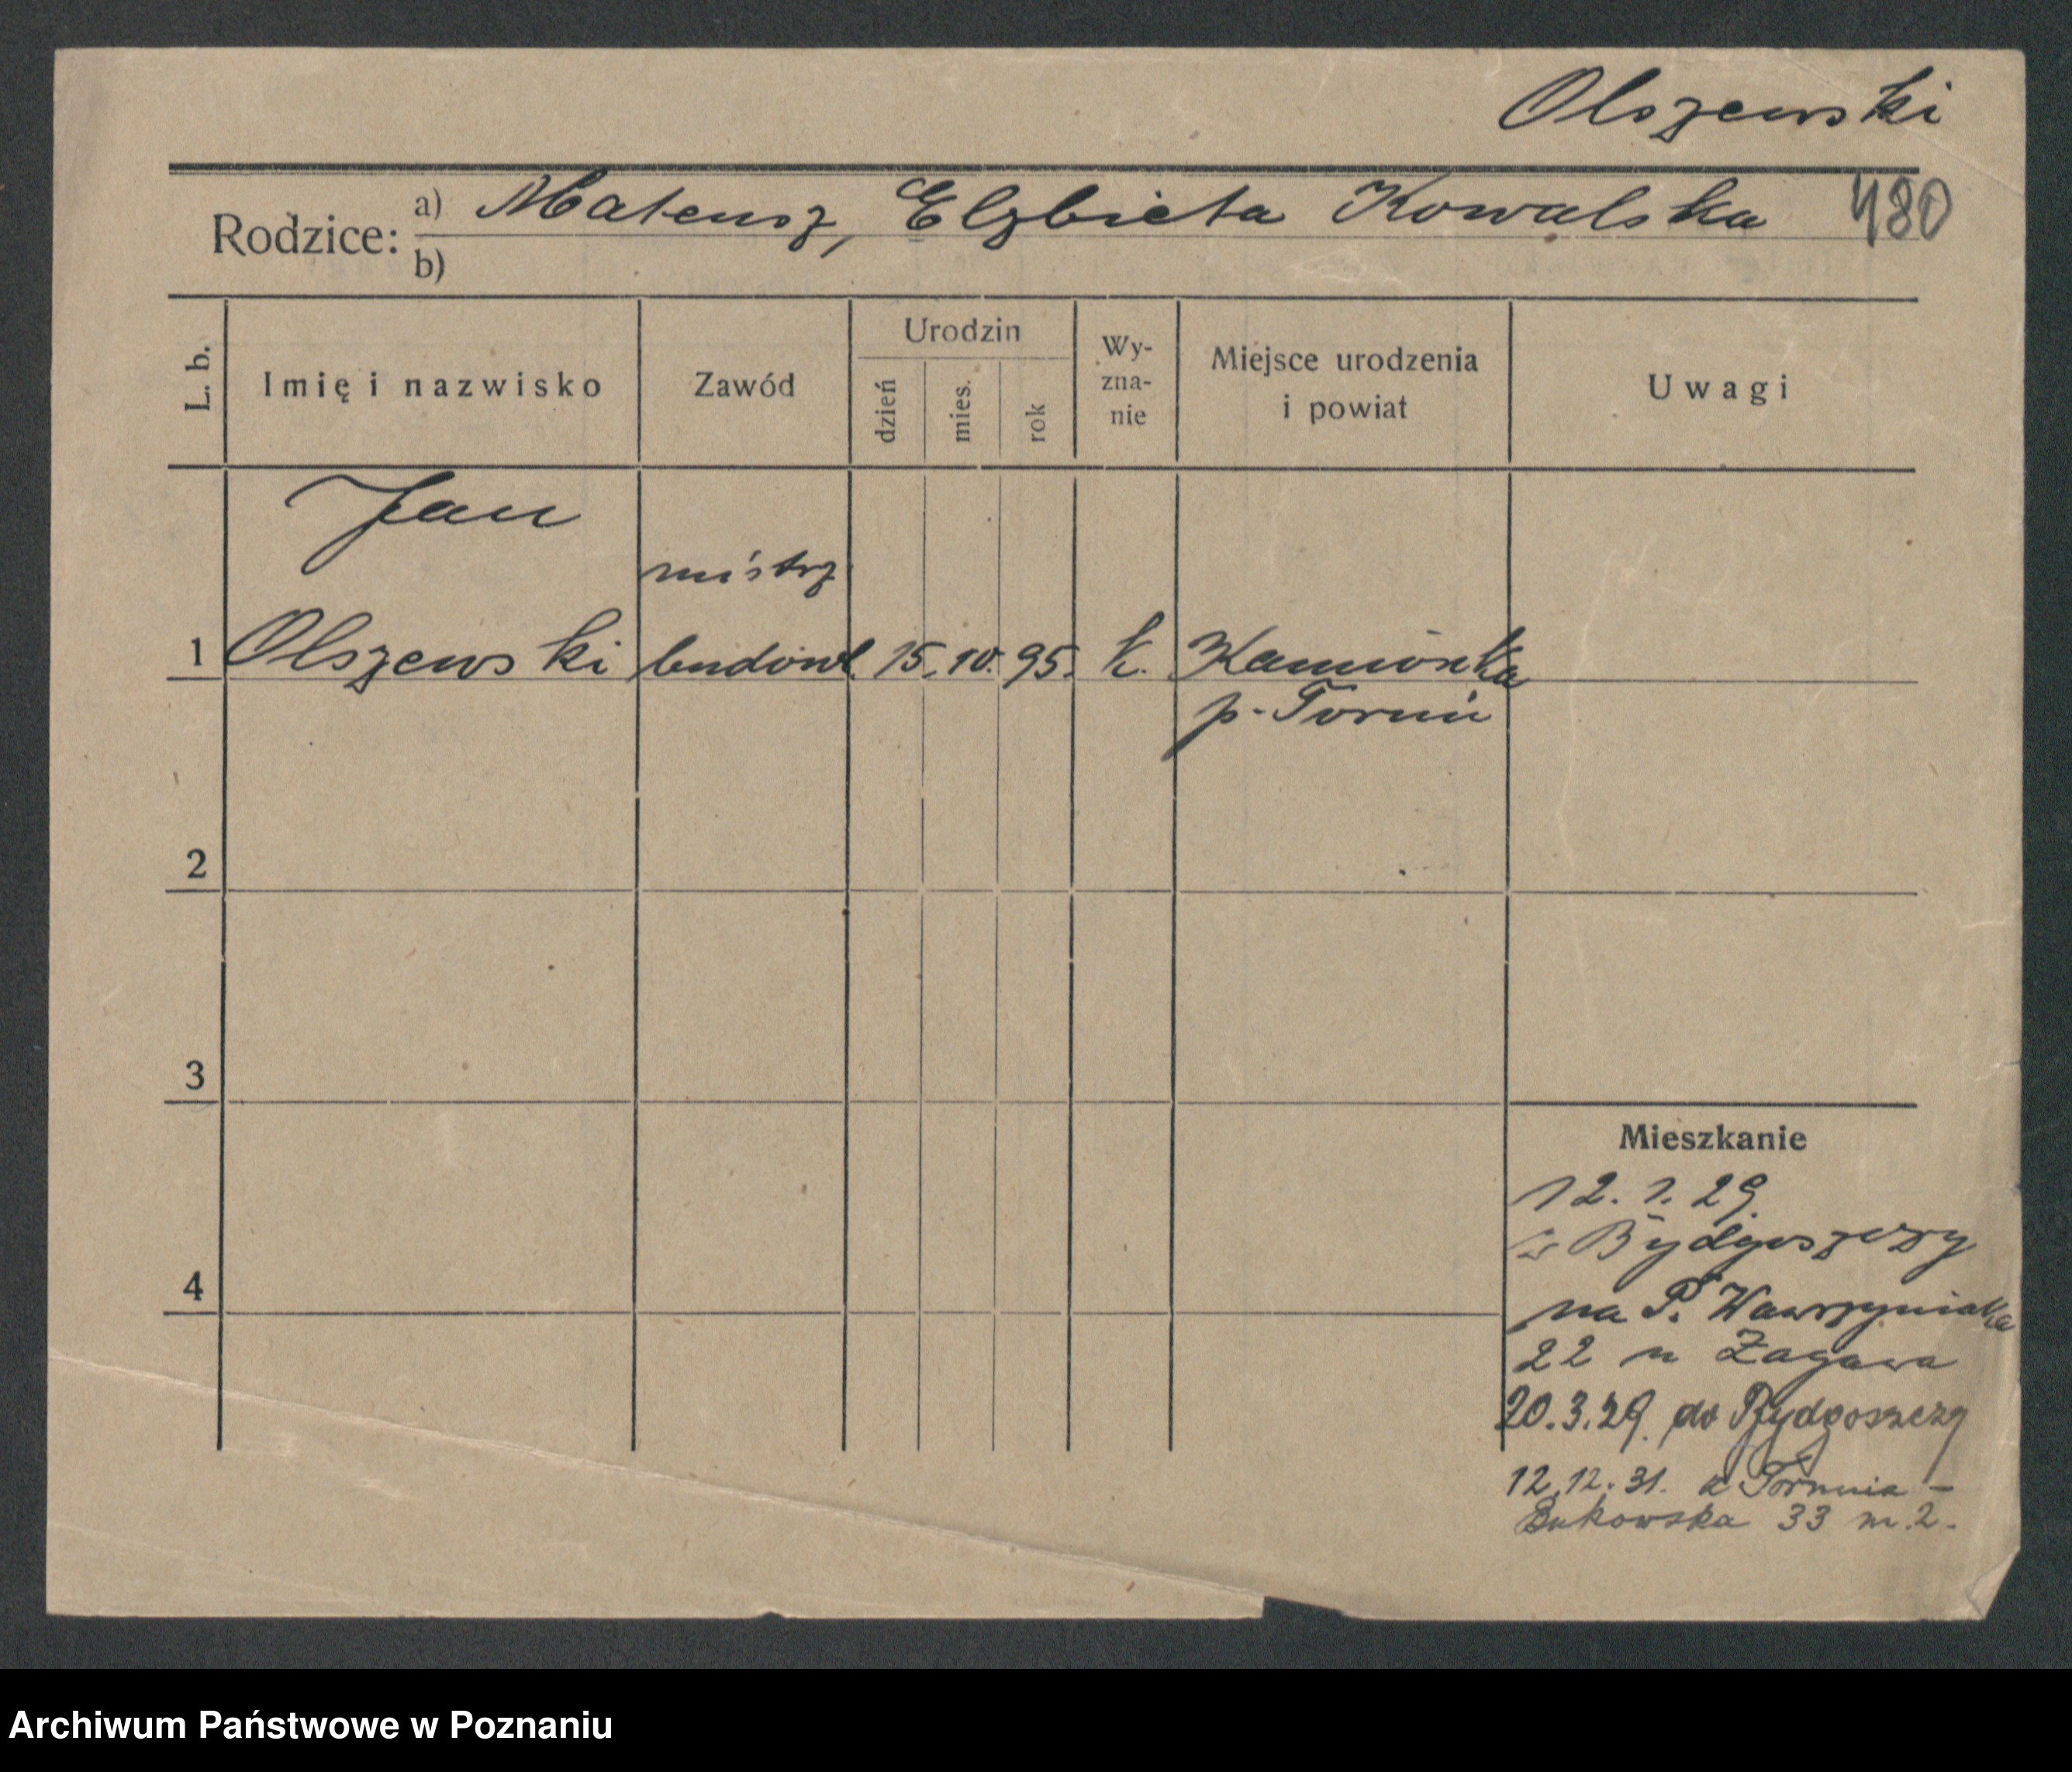 Olszewski
Rodzice: a) Mateusz, Elzbieta Kowalska 480
b)
L. b. Imię i nazwisko Zawód Urodzin dzień mies. rok Wy-zna-nie Miejsce urodzenia i powiat Uwagi
Jan
mistrz
1 Olszewski budowl. 15. 10. 95. k. Kamionka
p. Toruń
2
3
Mieszkanie
12. 1. 29.
z Bydgoszczy
4
na P. Wawrzyniaka
22 u Zagawa
20.3.29. do Bydgoszczy
12.12.31. z Torunia -
Bukowska 33 m. 2.
Archiwum Państwowe w Poznaniu